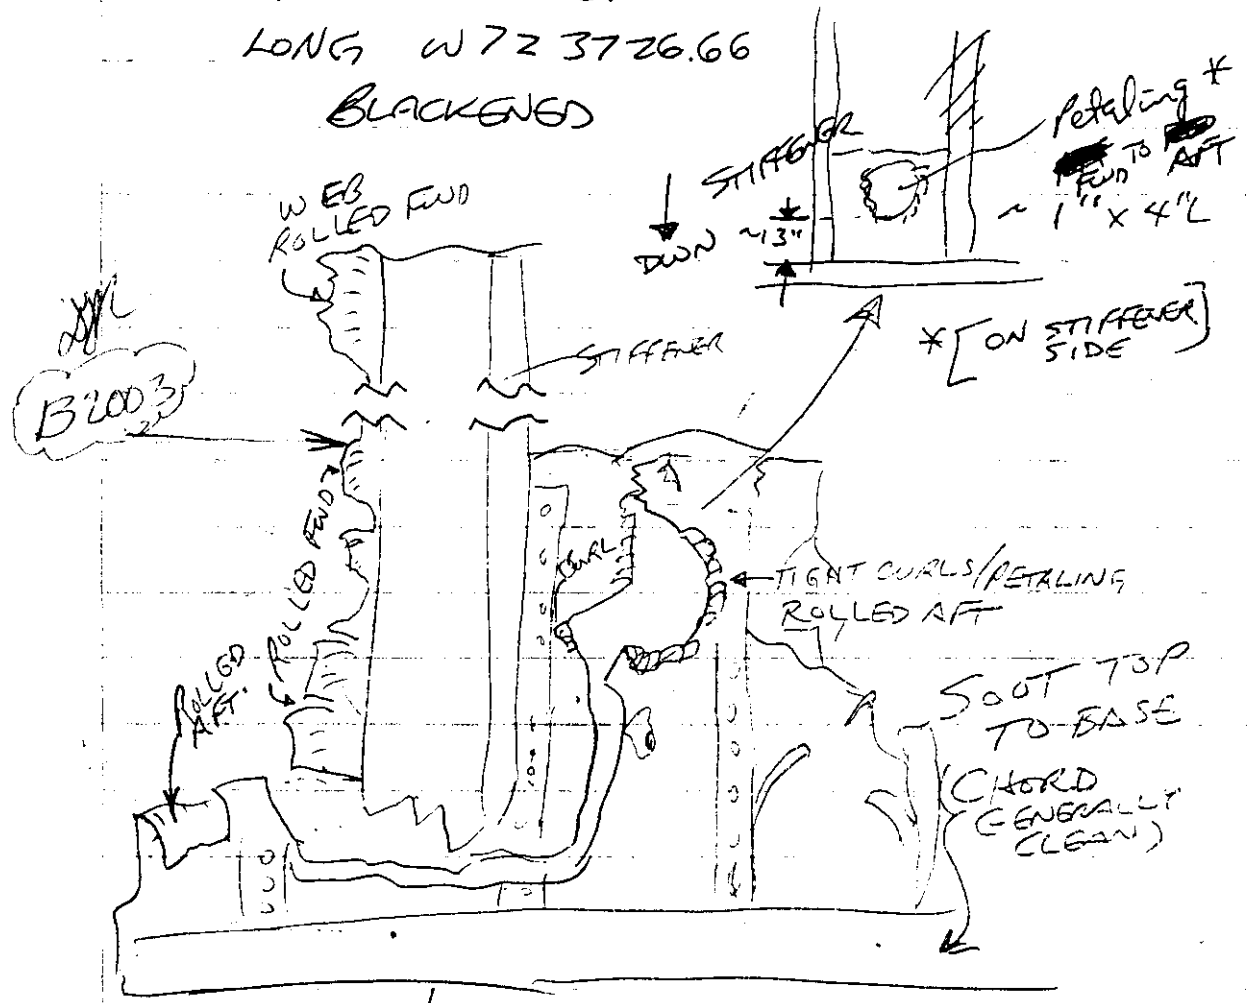 LONG W72 37 26.66
BLACKENED
WEB
ROLLED FWD
STIFFENER
DWN
~13"
Petaling *
FWD TO AFT
~ 1" x 4"L
* [ON STIFFENER
SIDE]
B2003
STIFFENER
ROLLED FWD
CURL
TIGHT CURLS/PETALING
ROLLED AFT
ROLLED
AFT
SOOT TOP
TO BASE
(CHORD
GENERALLY
CLEAN)